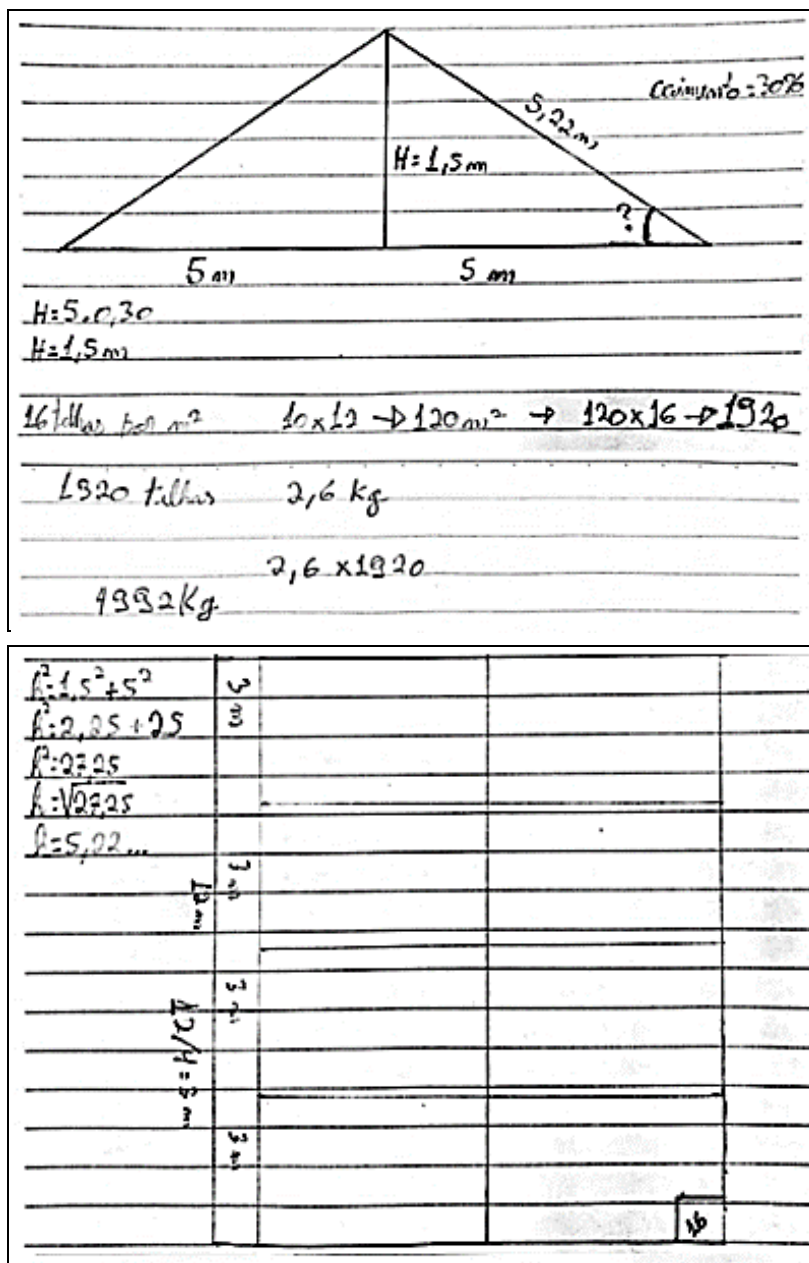 caimento = 30%
5,22m
H = 1,5 m
?
5 m
5 m
H = 5 . 0,30
H = 1,5 m
16 telhas por m² 10 x 12 → 120 m² → 120 x 16 → 1920
1920 telhas 2,6 Kg
2,6 x 1920
4992 Kg
h² = 1,5² + 5²
h² = 2,25 + 25
h² = 27,25
h = √27,25
h = 5,22...
3 m
3 m
12 m
3 m
12/4 = 3 m
3 m
16